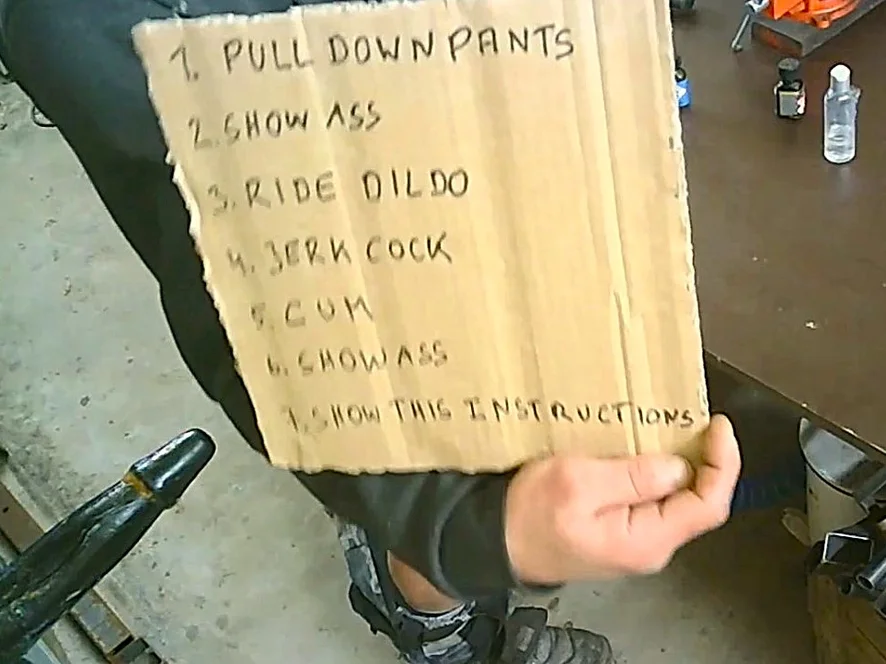 1. PULL DOWN PANTS
2. SHOW ASS
3. RIDE DILDO
4. JERK COCK
5. CUM
6. SHOW ASS
7. SHOW THIS INSTRUCTIONS